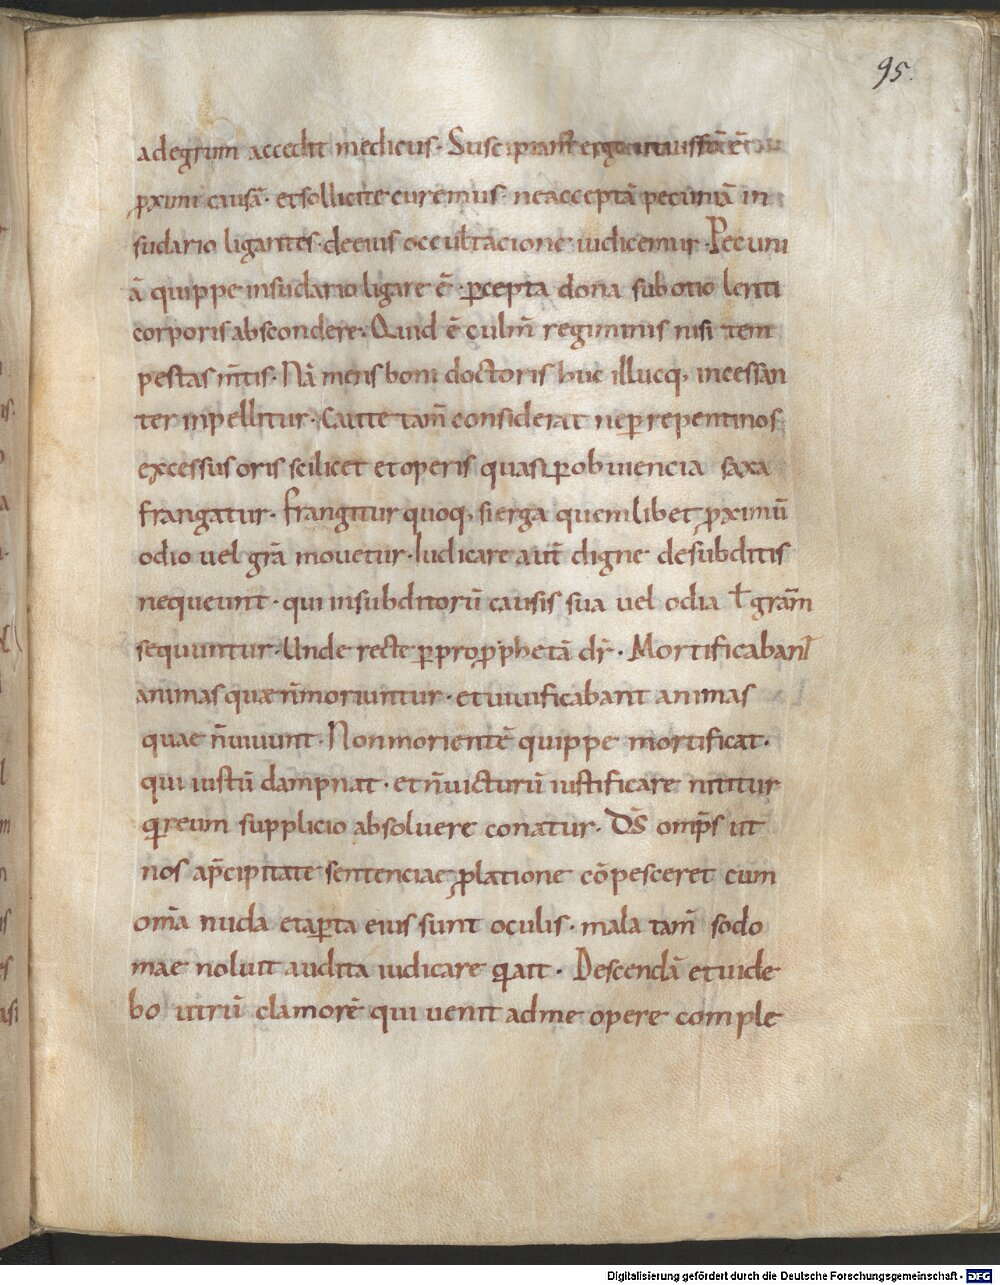 95.
adegrum accedit medicus· Suscipiant ergo ut iussū ē
p̱ximi causā· et sollicite curemus· ne acceptā pecuniā in
sudario ligantes· de eius occultacione iudicemur· Pecuni
ā quippe in sudario ligare ē· p̱cepta dona sub otio lenti
corporis abscondere· Quid ē culm̄ regiminis nisi tem
pestas m̄tis· Nā mens boni doctoris huc illucq, incessan
ter inpellitur· Caute tam̄ considerat ne p̱ repentinos
excessus oris scilicet et operis quasi p̱ obviencia saxa
frangatur· Frangitur quoq, si erga quemlibet p̱ximū
odio vel grā movetur· Iudicare aut̄ digne de subditis
nequeunt· qui in subditorū causis sua vel odia ł gram̄
sequuntur· Unde recte p̱ prop̱phetā dr̄· Mortificabant
animas quae n̄ moriuntur· et vivificabant animas
quae n̄ vivunt· Non morientē quippe mortificat·
qui iustū dampnat· et n̄ victurū iustificare nititur
q̱ reum supplicio absolvere conatur· D̄s omp̄s ut
nos a p̄cipitate sentenciae p̱latione cōpesceret cum
om̄a nuda et ap̱ta eius sunt oculis· mala tam̄ sodo
mae noluit audita iudicare q̱ ait· Descendā et vide
bo utrū clamorē qui venit ad me opere comple
Digitalisierung gefördert durch die Deutsche Forschungsgemeinschaft - DFG